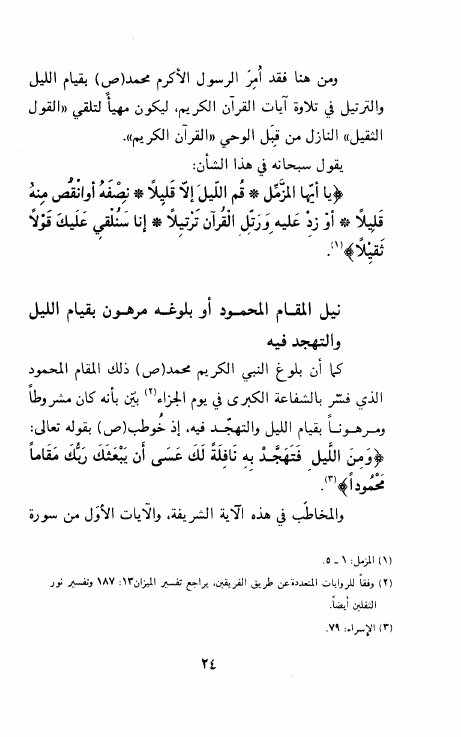 ومن هنا فقد أُمِرَ الرسول الأكرم محمد(ص) بقيام الليل
والترتيل في تلاوة آيات القرآن الكريم، ليكون مهيأً لتلقي «القول
الثقيل» النازل من قبَل الوحي «القرآن الكريم».
يقول سبحانه في هذا الشأن:
﴿يا أيّها المزَّمِّل * قُم اللَيلَ إلاّ قَلِيلاً * نِصْفَهُ أوانْقُص مِنهُ
قَلِيلاً * أوْ زِدْ عَليه وَرَتِلِ الْقُرآن تَرْتيلاً * إنا سَنُلْقي عَلَيكَ قَوْلاً
ثَقيْلاً﴾(١).
نيل المقام المحمود أو بلوغه مرهون بقيام الليل
والتهجد فيه
كما أن بلوغ النبي الكريم محمد(ص) ذلك المقام المحمود
الذي فسّر بالشفاعة الكبرى في يوم الجزاء(٢) بيّن بأنه كان مشروطاً
ومرهوناً بقيام الليل والتهجّد فيه، إذ خُوطب(ص) بقوله تعالى:
﴿وَمِنَ اللَّيلِ فَتَهَجَّدْ بِهِ نَافِلَةً لَكَ عَسَى أَن يَبْعَثَكَ رَبُّكَ مَقَاماً
مَحْمُوداً﴾(٣).
والمخاطَب في هذه الآية الشريفة، والآيات الأوَل من سورة
(١) المزمل: ١ ـ ٥.
(٢) وفقاً للروايات المتعددة عن طريق الفريقين، يراجع تفسير الميزان١٣: ١٨٧ وتفسير نور
الثقلين أيضاً.
(٣) الإسراء: ٧٩.
٢٤